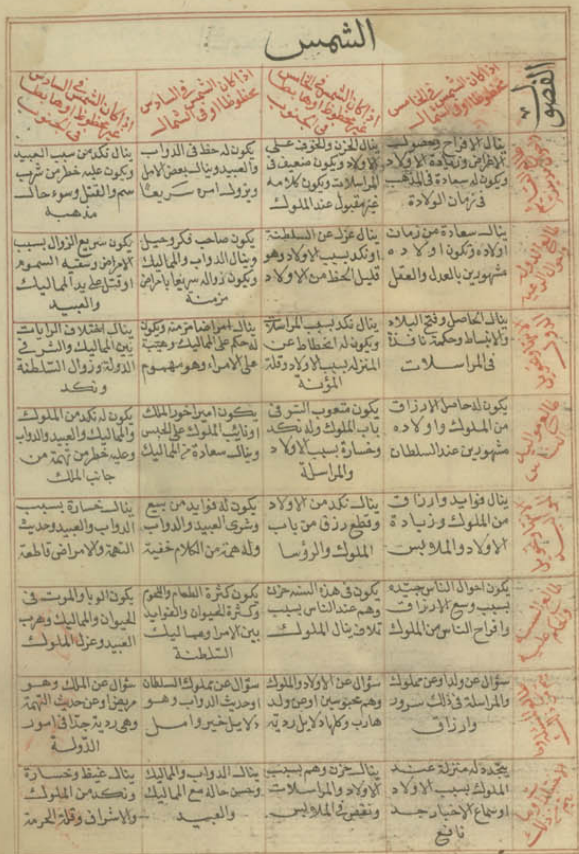 الشمس
الفصول
اذا كان الشمس في الخامس
محظوظا او في الشمال
اذا كان الشمس في الخامس
غير محظوظ او هابطا
في الجنوب
اذا كان الشمس في السادس
محظوظا او في الشمال
اذا كان الشمس في السادس
غير محظوظ او هابطا
في الجنوب
ينال الافراح وحصول
الاغراض وزيادة الاولاد
ويكون له سعادة في المذهب
في زمان الولادة
ينال الحزن والخوف على
الاولاد ويكون ضعيف في
المراسلات ويكون كلامه
غير مقبول عند الملوك
يكون له حظ في الدواب
والعبيد وينال بعض الامل
ويزول امره سريعا
ينال نكد من سبب العبيد
ويكون عليه خطر من شرب
سم والقتل وسوء حال
مذهبه
ينال سعادة من زمان
اولاده وتكون اولاده
مشهورين بالعدل والعقل
ينال عزل عن السلطنة
او نكد بسبب الاولاد وهو
قليل الحظ من الاولاد
يكون صاحب فكر وحيل
وينال الدواب والمماليك
ويكون زواله سريعا بامراض
مزمنة
يكون سريع الزوال بسبب
الامراض وسقيه السموم
او قتل على يد المماليك
والعبيد
ينال الحاصل وفتح البلاد
والانبساط وحكمة نافذة
في المراسلات
ينال نكد بسبب المراسلة
ويكون له انحطاط عن
المنزلة بسبب الاولاد وقلة
المؤنة
ينال امراضا مزمنة ويكون
له حكم على المماليك وهيبة
على الامراء وهو مهموم
ينال اختلاف الرايات
بين المماليك والشر في
الدولة وزوال السلطنة
ونكد
يكون له حاصل الارزاق
من الملوك واولاده
مشهورين عند السلطان
يكون متعوب السر في
باب الملوك وله نكد
وخسارة بسبب الاولاد
والمراسلة
يكون امير اخور الملك
او نايب الملوك على الحبس
وينال سعادة من المماليك
يكون له نكد من الملوك
والمماليك والعبيد والدواب
وعليه خطر من تهمة من
جانب الملك
ينال فوايد وارزاق
من الملوك وزيادة
الاولاد والملابس
ينال نكد من الاولاد
وقطع رزق من باب
الملوك والرؤسا
يكون له فوايد من بيع
وشرى العبيد والدواب
وله همة من الكلام خفية
ينال خسارة بسبب
الدواب والعبيد وحديث
التهمة والامراض قاطعة
يكون احوال الناس جيده
بسبب وسع الارزاق
وافراح الناس من الملوك
يكون في هذه السنه حزن
وهم عند الناس بسبب
تلاف بنال الملوك
يكون كثرة الطعام واللحوم
وكثرة الحيوان والفوايد
بين الامرا ومماليك
السلطنة
يكون الوبا والموت في
الحيوان والمماليك وهرب
العبيد وعزل الملوك
سؤال عن ولد او عن مملوك
والمراسلة في ذلك سرور
وارزاق
سؤال عن الاولاد والملوك
وهم محبوسين او عن ولد
هارب وكلها دلايل رديه
سؤال عن مملوك السلطان
او حديث الدواب وهو
دلايل خير وامل
سؤال عن الملك وهو
مريض او عن حديث التهمة
وهي ردية جدا في امور
الدولة
يتجدد له منزلة عند
الملوك بسبب الاولاد
او سماع الاخبار جد
نافع
ينال حزن وهم بسبب
الاولاد والمراسلات
ونقيص في الملابس
ينال الدواب والمماليك
وحسن حاله مع المماليك
والعبيد
ينال غيظ وخسارة
ونكد من الملوك
والاشراف وقلة الحرمة